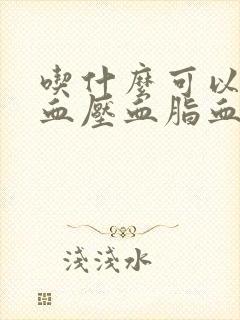 喫什麼可以
血壓血脂血
淺淺水